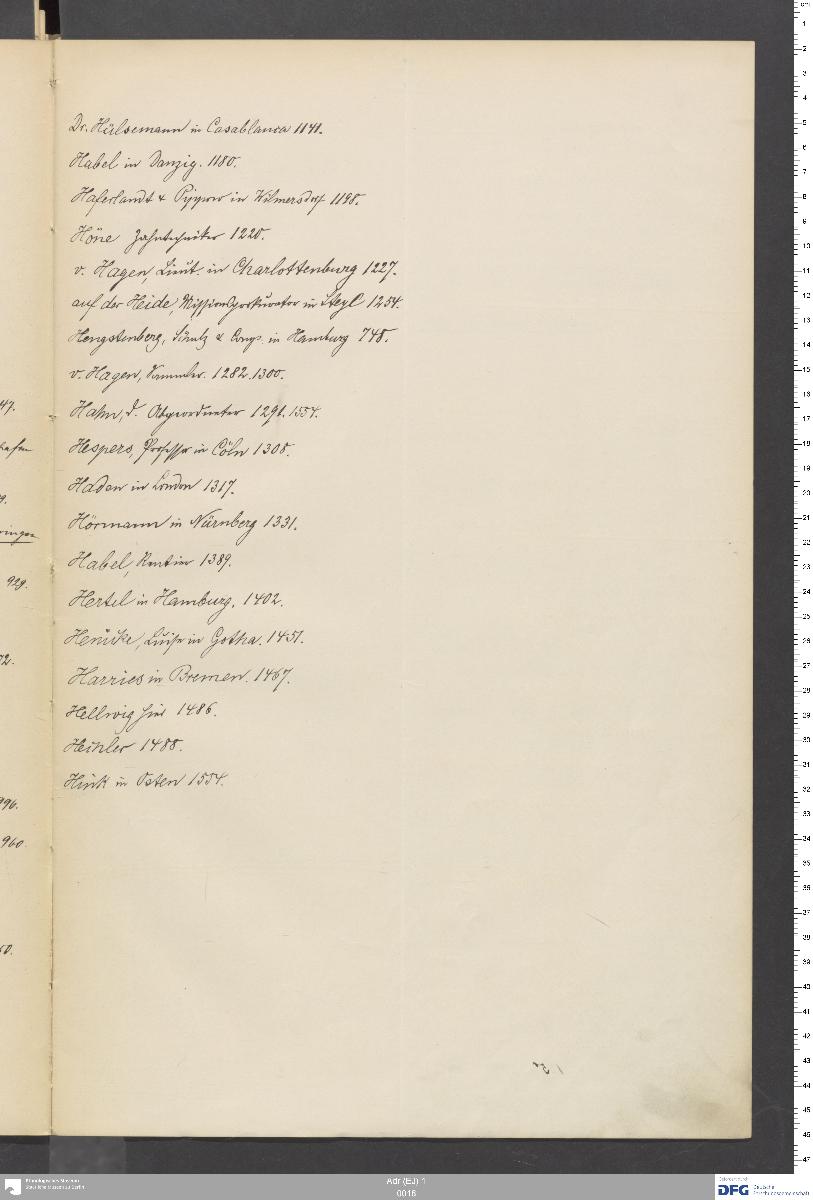 Dr. Hülsemann in Casablanca 1141.
Habel in Danzig. 1180.
Haferlandt & Pippow in Wilmersdorf 1198.
Höne Zahntechniker 1220.
v. Hagen, Lieut. in Charlottenburg 1227.
auf der Heide, Missionsprokurator in Steyl 1254.
Hengstenberg, Schulz & Comp. in Hamburg 748.
v. Hagen, Sammler. 1282. 1300.
Hahn, d. Abgeordneter 1291. 1554.
Hespers, Professor in Cöln 1308.
Haden in London 1317.
Hörmann in Nürnberg 1331.
Habel, Rentier 1389.
Hertel in Hamburg. 1402.
Henicke, Luise in Gotha. 1451.
Harries in Bremen. 1467.
Hellwig 1486.
1488.
Hink in Osten 1554.
47.
929.
72.
996.
960.
Ethnologisches Museum
Staatliche Museen zu Berlin
Adr (EJ) 1
0016
DFG Deutsche
Forschungsgemeinschaft